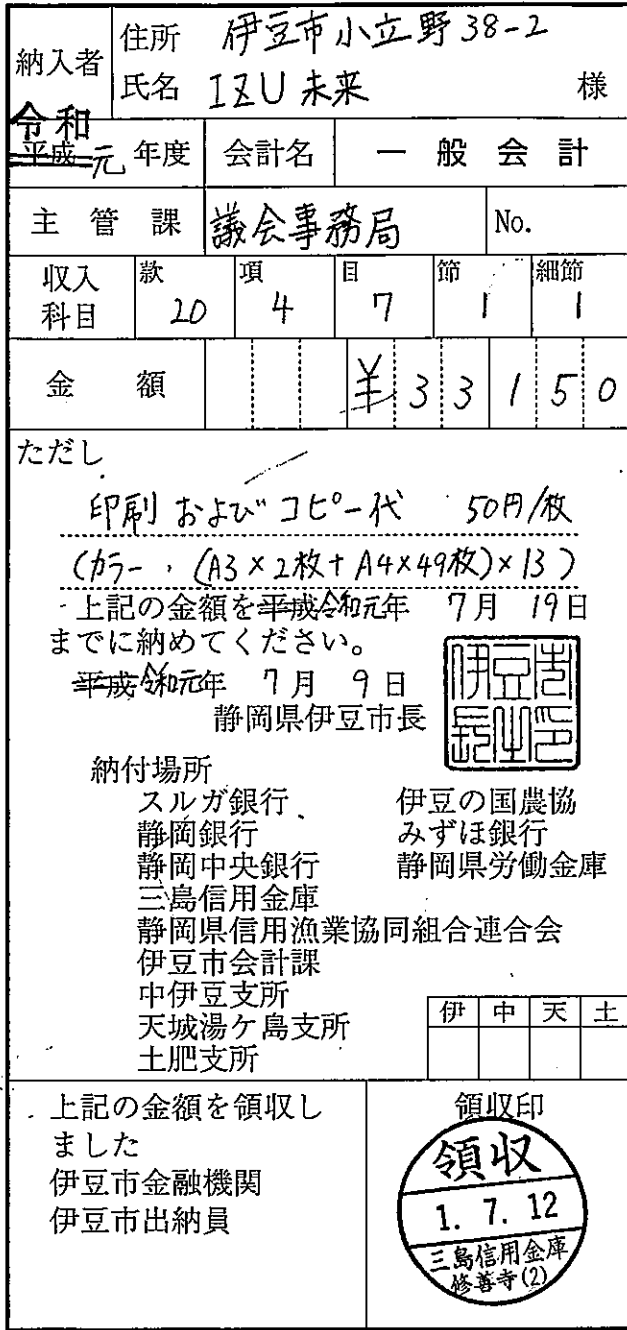 納入者 住所 伊豆市小立野38-2
氏名 IZU未来 様
令和
平成 元 年度 会計名 一般会計
主管課 議会事務局 No.
収入科目 款 20 項 4 目 7 節 1 細節 1
金額 ¥33150
ただし
印刷およびコピー代 50円/枚
(カラー,(A3×2枚+A4×49枚)×13)
上記の金額を平成令和元年 7月 19日
までに納めてください。
平成令和元年 7月 9日
静岡県伊豆市長
伊豆市長之印
納付場所
スルガ銀行 伊豆の国農協
静岡銀行 みずほ銀行
静岡中央銀行 静岡県労働金庫
三島信用金庫
静岡県信用漁業協同組合連合会
伊豆市会計課
中伊豆支所
天城湯ケ島支所
土肥支所
伊 中 天 土
上記の金額を領収し
ました
伊豆市金融機関
伊豆市出納員
領収印
領収
1. 7. 12
三島信用金庫
修善寺(2)